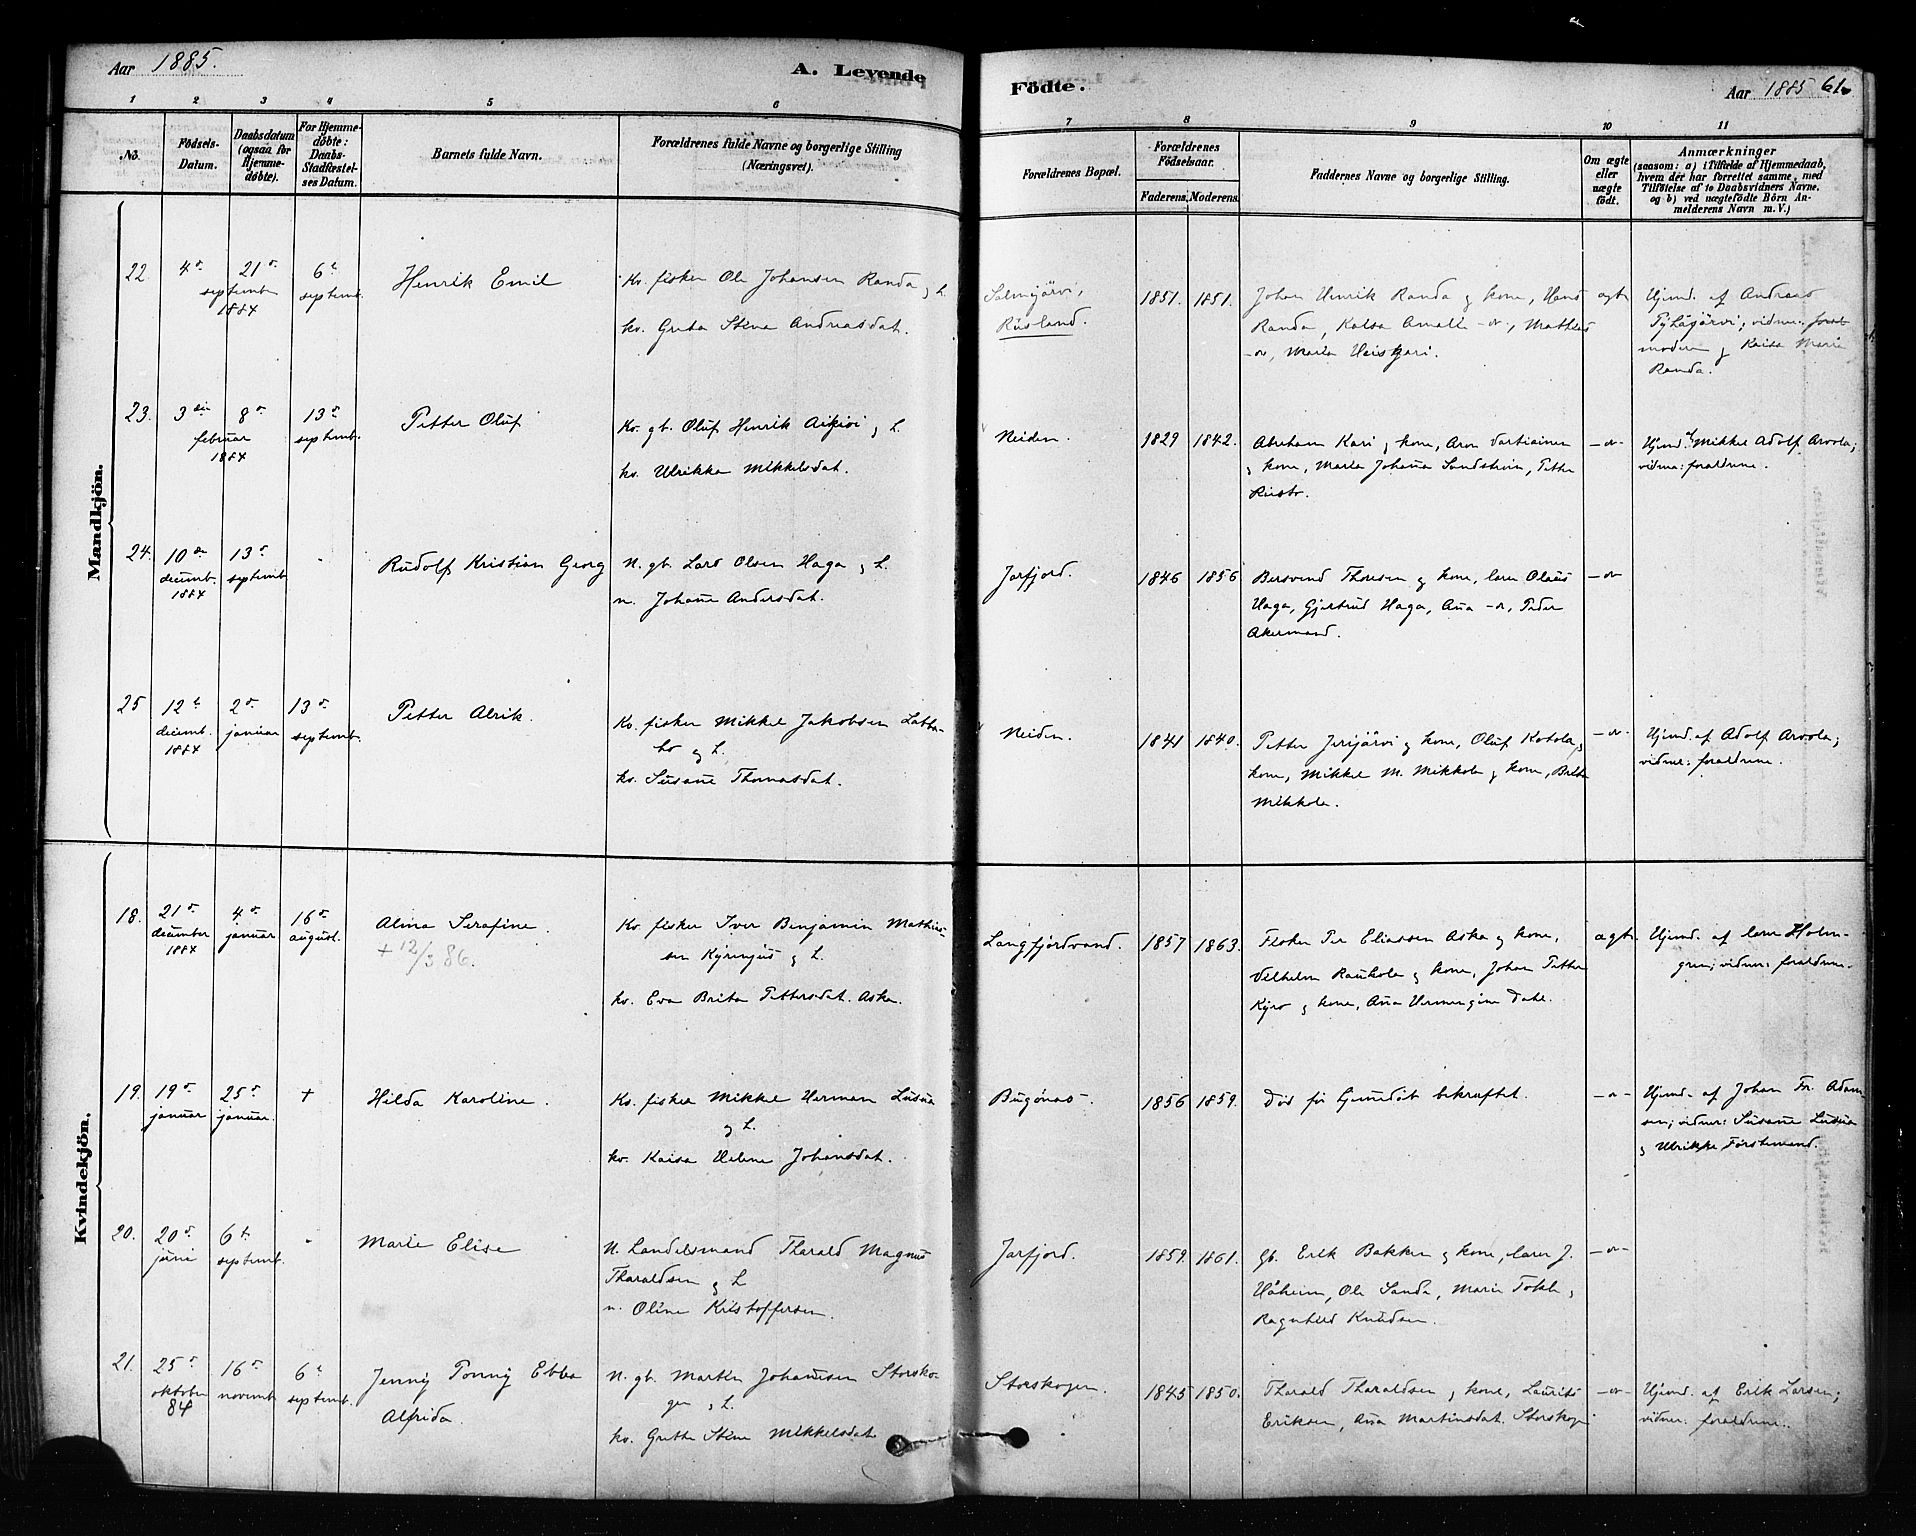 Aar 1885.
A. Levende
Födte.
Aar 1885 61.
1 2 3 4 5 6
7 8 9 10 11
No.
Födsels-
Datum.
Daabsdatum
(ogsaa for
Hjemme-
døbte).
For Hjemme-
døbte:
Daabs-
Stadfæstel-
ses Datum.
Barnets fulde Navn.
Forældrenes fulde Navne og borgerlige Stilling
(Næringsvei).
Forældrenes Bopæl.
Forældrenes
Födselsaar.
Faderens. Moderens.
Faddernes Navne og borgerlige Stilling.
Om ægte
eller
uægte
født.
Anmærkninger
(saasom: a) i Tilfælde af Hjemmedaab,
hvem der har forrettet samme, med
Tilföielse af to Daabsvidners Navne,
og b) ved uægtefödte Börn An-
melderens Navn m. V.)
Mandkjön.
22. 4de 21de septembr 1884 6te septemb.
Henrik Emil
Kv. fisker Ole Johansen Randa og h.
kv. Greta Stina Andreasdat.
Salmijärvi,
Rusland.
1851. 1851.
Johan Henrik Randa og kone, Hans
Randa, Kaisa Amalie -o-, Mathias
-o-, Maria Heiskari.
ægte
Hjemd. af Andreas
vidner: jord-
moder og Kaisa Maria
Randa.
23. 3die 8de februar 1884 13de septemb.
Petter Oluf
Kv. gb. Oluf Henrik Aikivi og h.
kv. Ulrikka Mikkelsdat.
Neiden.
1829 1842.
Abraham Kari og kone, Aron Vartiainen
og kone, Maria Johanna Sandström, Petter
-o-
Hjemd. af Mikkel Adolf Arvola;
vidner: forældrene.
24. 10de decemb. 1884 13de septemb. -
Rudolf Kristian Georg
N. gb. Lars Olsen Haga og h.
n. Johanne Andersdat.
Jarfjord.
1846 1856
Bersvend Thoresen og kone, lærer Olaus
Haga, Gjertrud Haga, Anna -o-, Peder
Akermand.
-o-
25 12te decemb. 1884 2de januar 13de septemb.
Petter Alrik.
Kv. fisker Mikkel Jakobsen Latha-
og h.
kv. Susanne Thomasdat.
Neiden.
1841 1840.
Petter Jerijärvi og kone, Oluf Kotola og
kone, Mikkel M. Mikkola og kone, Brita
Mikkola.
-o-
Hjemd. af Adolf Arvola;
vidner: forældrene.
Kvindekjön.
18. 21de december 1884 4de januar 16de august.
Alma Serafine.
+ 12/3 86.
Kv. fisker Iver Benjamin Mathias-
sen Kyrinjus og h.
kv. Eva Brita Pettersdat. Aska.
Langfjordvand.
1857 1863.
Fisker Per Eliassen Aska og kone,
Vilhelm Raukola og kone, Johan Petter
Kyrö og kone, Anna Hermengine Dahl.
ægte
Hjemd. af lærer Holm-
gren; vidner: forældrene.
19. 19de januar 25de januar. +
Hilda Karoline.
Kv. fisker Mikkel Herman Lusua
og h.
kv. Kaisa Helene Johansdat.
Bugønæs.
1856 1859.
Död før Hjemdøbt bekræftet.
-o-
Hjemd. af Johan Fr. Adam-
sen; vidner: Susanne Lusua
og Ulrikke Förstemand.
20. 20de juni 6te septemb. -
Marie Elise
N. Landelsmand Tharald Magnus
Tharaldsen og h
n. Oline Kristoffersen
Jarfjord.
1859. 1861.
gb. Erik Bakken og kone, lærer J.
Håheim, Ole Sanda, Marie Tokle,
Ragnhild Knudsen.
-o-
21. 25de oktober 84 16de novembr 6te septemb.
Jenny Tonny Ebba
Alfrida.
N. gb. Martin Johannesen Storsko-
gen og h.
kv. Grethe Stine Mikkelsdat
Storskogen.
1845 1850.
Tharald Tharaldsen og kone, Laurits
Eriksen, Anna Martinsdat. Storskogen
-o-
Hjemd. af Erik Larsen;
vidner: forældrene.